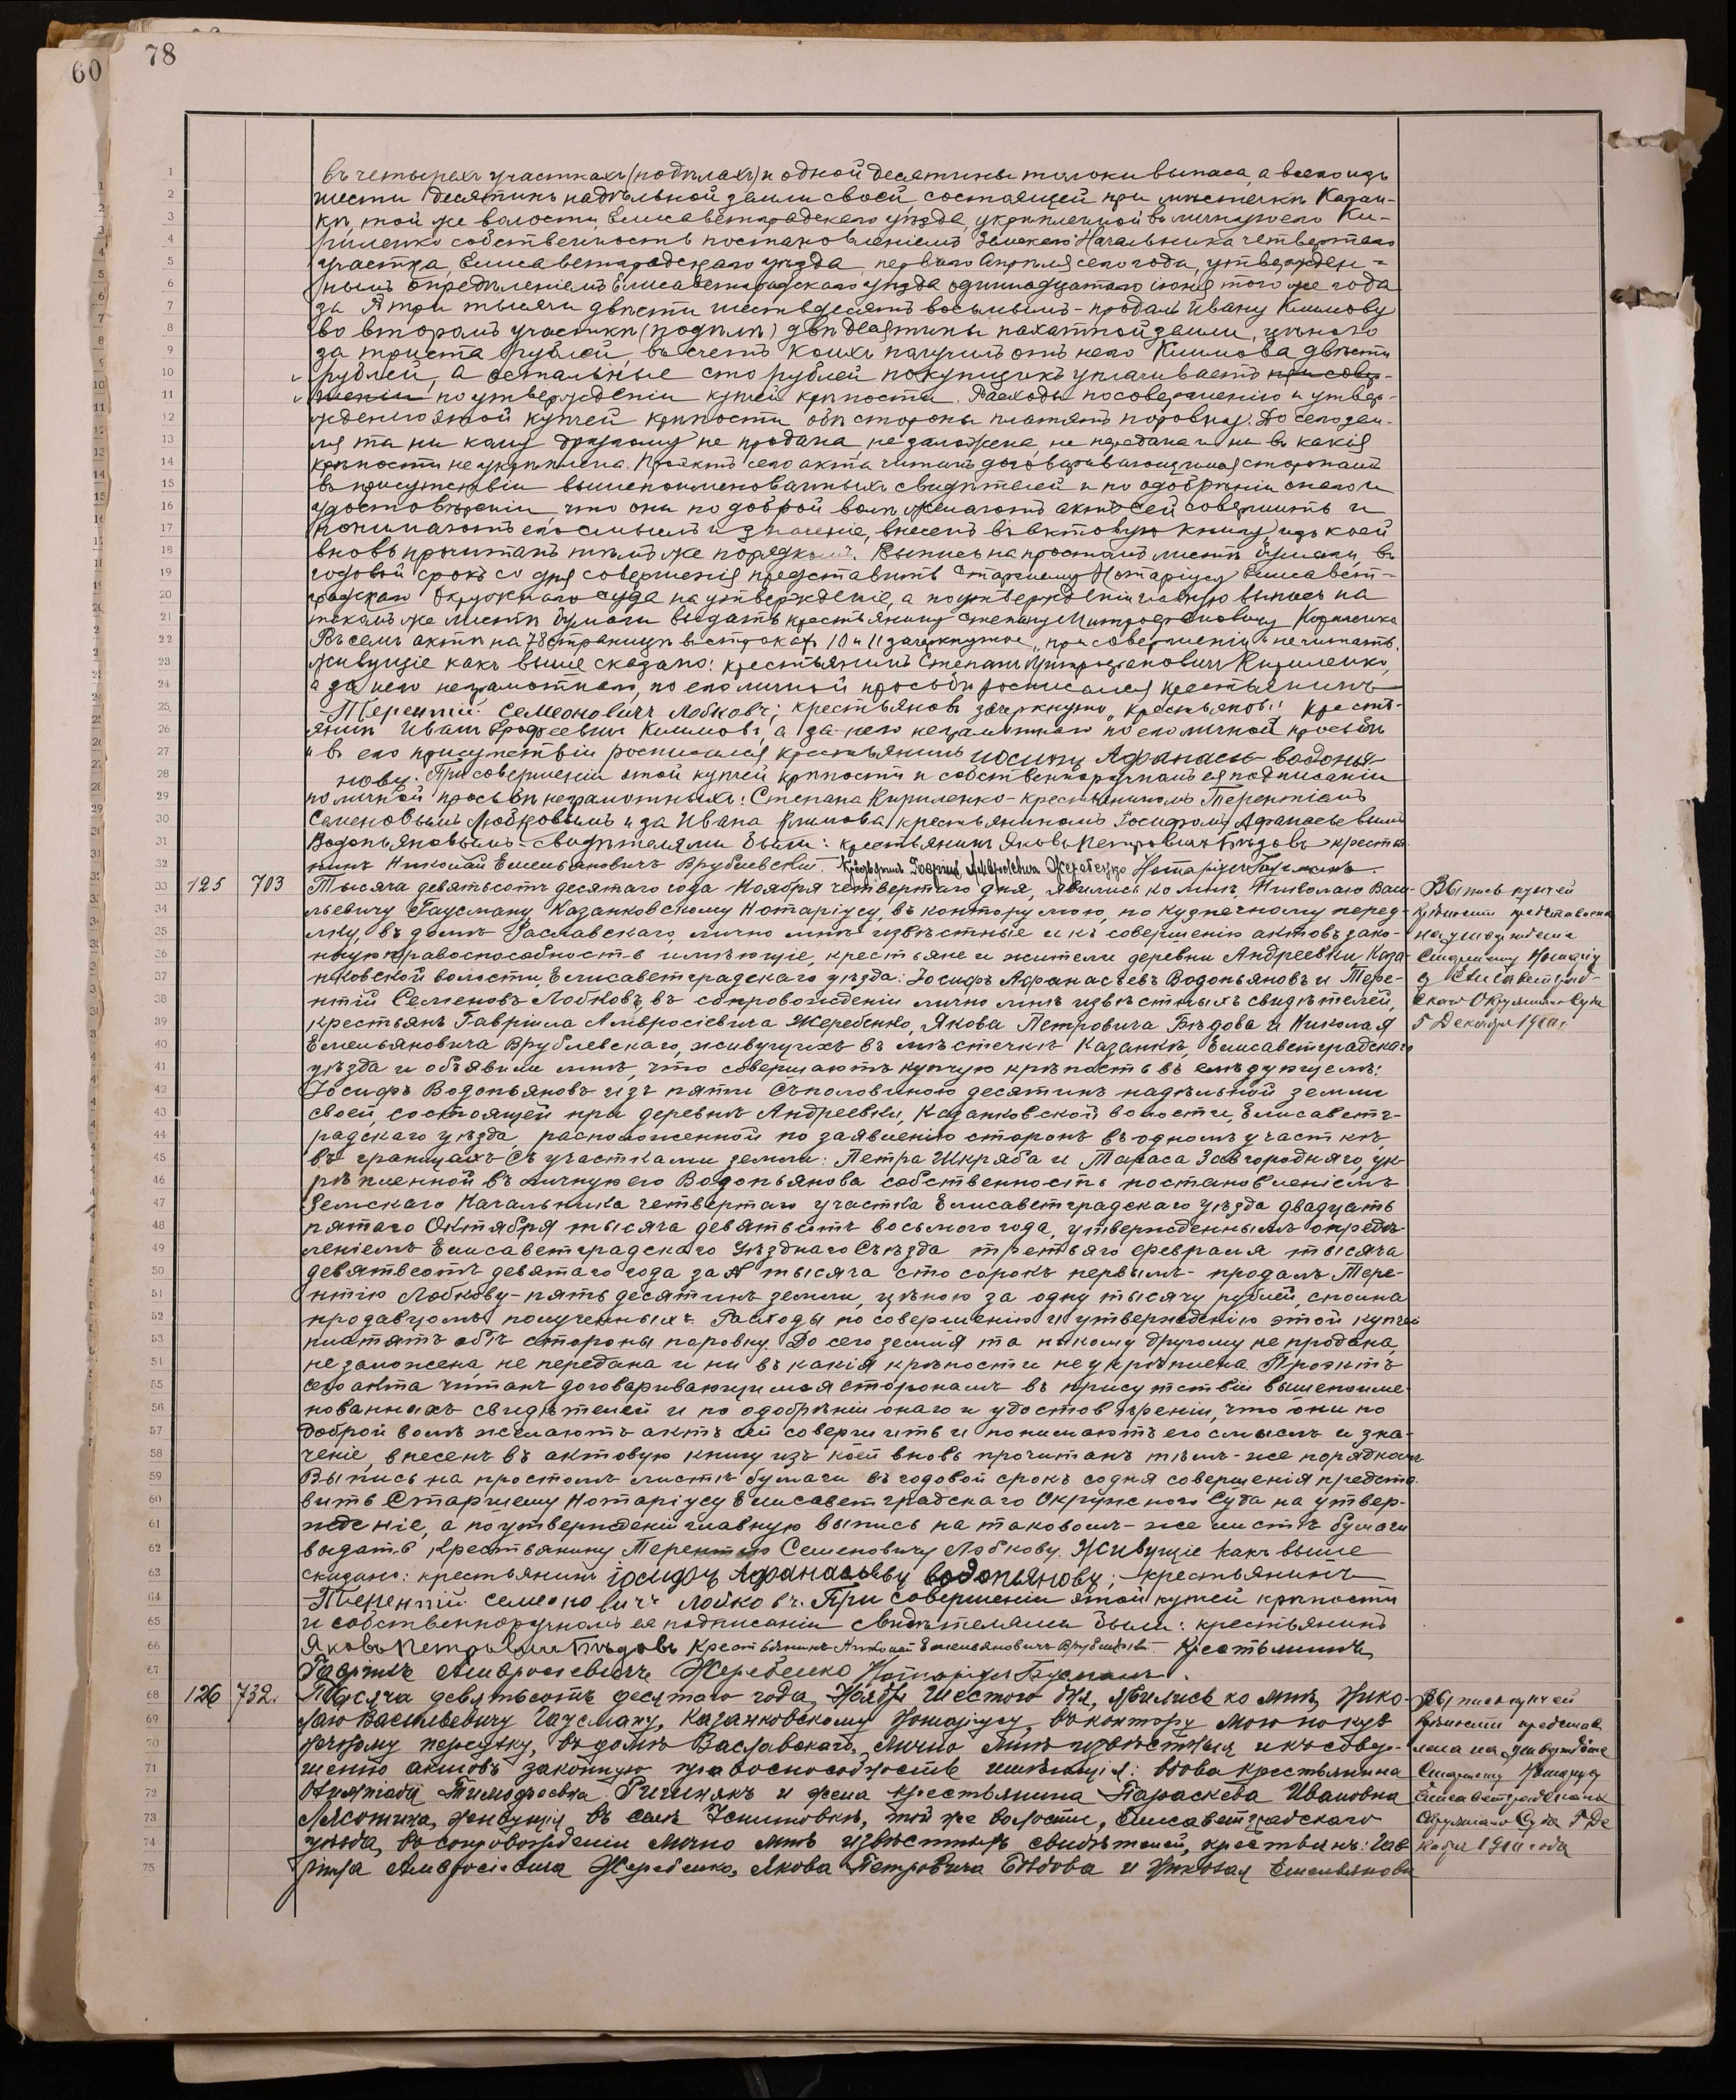 60
78
въ четырехъ участкахъ (подѣлахъ) и одной десятины толоки выпаса, а всего изъ
шести десятинъ надѣльной земли своей, состоящей при мѣстечкѣ Казан-
кѣ, той же волости, Елисаветградскаго уѣзда, укрѣпленной въ личную его Ки-
риленко собственность постановленіемъ Земскаго Начальника четвертаго
участка, Елисаветградскаго уѣзда, перваго Апрѣля сего года, утвержден-
нымъ опредѣленіемъ Елисаветградскаго уѣзда одиннадцатаго іюня того же года
за № три тысячи двѣсти шестьдесятъ восьмымъ - продалъ Ивану Климову
во второмъ участкѣ (подѣлѣ) двѣ десятины пахатной земли, цѣною
за триста рублей, въ счетъ коихъ получилъ отъ него Климова двѣсти
рублей, а остальные сто рублей покупщикъ уплачиваетъ при совер-
шеніи по утвержденіи купчей крѣпости. Расходы по совершенію и утвер-
жденію этой купчей крѣпости обѣ стороны платятъ поровну. До сего зем-
ля та ни кому другому не продана, не заложена, не передана и ни въ какія
крѣпости не укрѣплена. Проэктъ сего акта читанъ договаривающимся сторонамъ
въ присутствіи вышепоименованныхъ свидѣтелей и по одобреніи онаго и
удостовѣреніи, что они по доброй волѣ желаютъ актъ сей совершить и
понимаютъ его смыслъ и значеніе, внесенъ въ актовую книгу, изъ коей
вновь прочитанъ тѣмъ же порядкомъ. Выпись на простомъ листѣ бумаги, въ
годовой срокъ со дня совершенія представить Старшему Нотаріусу Елисавет-
градскаго Окружнаго Суда на утвержденіе, а по утвержденіи главную выпись на
такомъ же листѣ бумаги выдать крестьянину Степану Митрофановичу Кириленко
Въ семъ актѣ на 78 страницѣ въ строкахъ 10 и 11 зачеркнутое „при совершеніи" не читать.
Живущіе какъ выше сказано: крестьянинъ Степанъ Митрофановичъ Кириленко,
а за него неграмотнаго, по его личной просьбѣ росписался крестьянинъ
Терентій Семеновичъ Лобковъ; крестьяновъ зачеркнуто „крестьяновъ" крестъ-
янинъ Иванъ Ерофеевичъ Климовъ, а за него неграмотнаго по его личной просьбѣ
и въ его присутствіи росписался крестьянинъ иосифъ Афанасьевъ водопья-
новъ. При совершеніи этой купчей крѣпости и собственноручномъ ея подписаніи
по личной просьбѣ неграмотныхъ: Степана Кириленко - крестьяниномъ Терентіемъ
Семеновымъ Лобковымъ и за Ивана Климова крестьяниномъ Іосифомъ Афанасьевымъ
Водопьяновымъ - свидѣтелями были: крестьянинъ Яковъ Петровичъ Бѣдовъ крестья-
нинъ Николай Емельяновичъ Врублевскій. Крестьянинъ Гавріилъ Амвросіевичъ Жеребенко Нотаріусъ Гаусманъ.
125 703 Тысяча девятьсотъ десятаго года Ноября четвертаго дня, явились ко мнѣ, Николаю Васи-
льевичу Гаусману, Казанковскому Нотаріусу, въ контору мою, по кузнечному переу-
лку, въ домѣ Заславскаго, лично мнѣ извѣстные и къ совершенію актовъ зако-
нную правоспособность имѣющіе, крестьяне и жители деревни Андреевки, Каза-
нковской волости, Елисаветградскаго уѣзда: Іосифъ Афанасьевъ Водопьяновъ и Тере-
нтій Семеновъ Лобковъ, въ сопровожденіи лично мнѣ извѣстныхъ свидѣтелей,
крестьянъ Гавріила Амвросіевича Жеребенко, Якова Петровича Бѣдова и Николая
Емельяновича Врублевскаго, живущихъ въ мѣстечкѣ Казанкѣ, Елисаветградскаго
уѣзда и объявили мнѣ, что совершаютъ купчую крѣпость въ слѣдующемъ:
Іосифъ Водопьяновъ изъ пяти съ половиною десятинъ надѣльной земли
своей, состоящей при деревнѣ Андреевки, Казанковской волости, Елисаветг-
радскаго уѣзда, расположенной по заявленію сторонъ въ одномъ участкѣ,
въ границахъ съ участками земли: Петра Шкряба и Тараса Завгородняго, ук-
рѣпленной въ личную его Водопьянова собственность постановленіемъ
Земскаго Начальника четвертаго участка Елисаветградскаго уѣзда двадцать
пятаго Октября тысяча девятьсотъ восьмого года, утвержденнымъ опредѣ-
леніемъ Елисаветградскаго Уѣзднаго Съѣзда третьяго февраля тысяча
девятьсотъ девятаго года за № тысяча сто сорокъ первымъ - продалъ Тере-
нтію Лобкову - пять десятинъ земли, цѣною за одну тысячу рублей, сполна
продавцомъ полученныхъ. Расходы по совершенію и утвержденію этой купчей
платятъ обѣ стороны поровну. До сего земля та никому другому не продана,
не заложена, не передана и ни въ какія крѣпости не укрѣплена. Проэктъ
сего акта читанъ договаривающимся сторонамъ въ присутствіи вышепоиме-
нованныхъ свидѣтелей и по одобреніи онаго и удостовѣреніи, что они по
доброй волѣ желаютъ актъ сей совершить и понимаютъ его смыслъ и зна-
ченіе, внесенъ въ актовую книгу изъ коей вновь прочитанъ тѣмъ-же порядкомъ
Выпись на простомъ листѣ бумаги въ годовой срокъ со дня совершенія предста-
вить Старшему Нотаріусу Елисаветградскаго Окружнаго Суда на утвер-
жденіе, а по утвержденіи главную выпись на таковомъ-же листѣ бумаги
выдать Крестьянину Терентію Семеновичу Лобкову. Живущіе какъ выше
сказано: крестьянинъ іосифъ Афанасьевъ водопьяновъ; крестьянинъ
Терентій семеновичъ лобковъ. При совершеніи этой купчей крѣпости
и собственноручномъ ея подписаніи свидѣтелями были: крестьянинъ
Яковъ Петровичъ Бѣдовъ Крестьянинъ Николай Емельяновичъ Врублевскій Крестьянинъ
Гавріилъ Амвросіевичъ Жеребенко Нотаріусъ Гаусманъ.
Выпись купчей
крѣпости представлена
на утвержденіе
Старшему Нотаріу
су Елисаветград-
скаго Окружнаго Суда
5 Декабря 1910 г.
126 732. Тысяча девятьсотъ десятаго года, Ноября шестого дня, явились ко мнѣ, Нико-
лаю Васильевичу Гаусману, Казанковскому Нотаріусу, въ контору мою по куз-
нечному переулку, въ домѣ Заславскаго, лично мнѣ извѣстныя и къ совер-
шенію актовъ законную правоспособность имѣющія: вдова крестьянина
Тимофеевна и жена крестьянина Параскева Ивановна
живущія въ селѣ той же волости, Елисаветградскаго
уѣзда, въ сопровожденіи лично мнѣ извѣстныхъ свидѣтелей, крестьянъ: Гав-
ріила Амвросіевича Жеребенко, Якова Петровича Бѣдова и Николая Емельянови
Выпись купчей
крѣпости представ
лена на утвержденіе
Старшему Нотаріусу
Елисаветградскаго
Окружнаго Суда 5 Де
кабря 1910 года